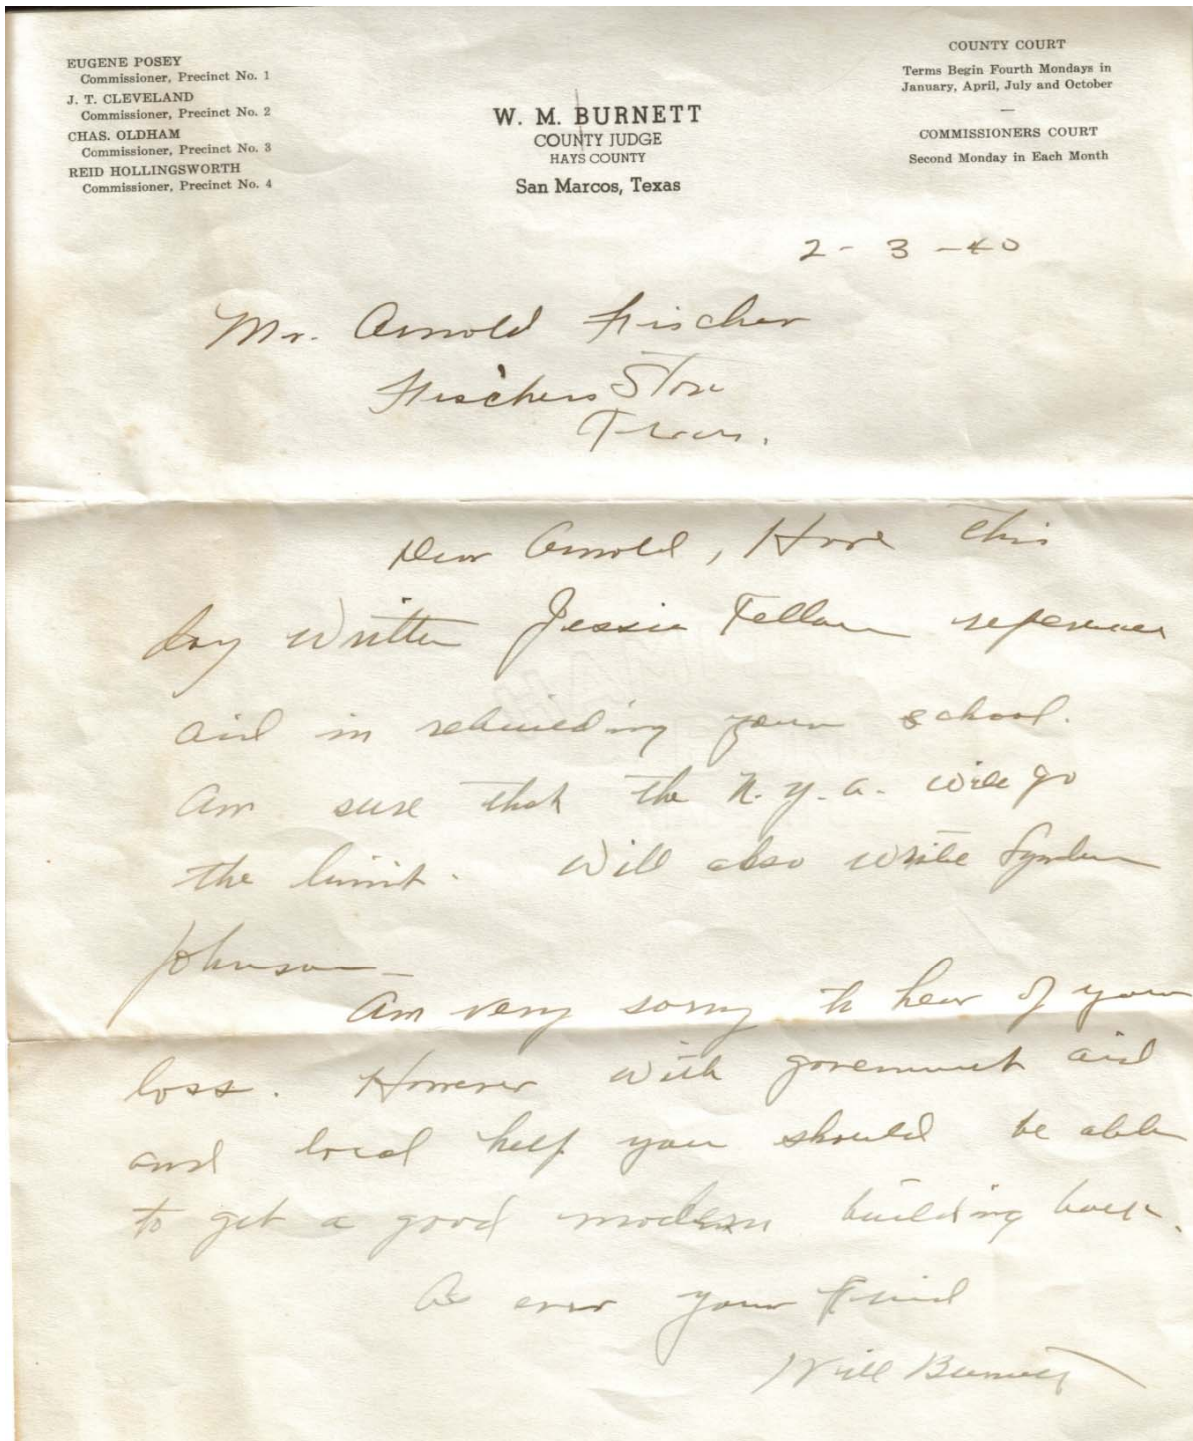 EUGENE POSEY
Commissioner, Precinct No. 1
J. T. CLEVELAND
Commissioner, Precinct No. 2
CHAS. OLDHAM
Commissioner, Precinct No. 3
REID HOLLINGSWORTH
Commissioner, Precinct No. 4
W. M. BURNETT
COUNTY JUDGE
HAYS COUNTY
San Marcos, Texas
COUNTY COURT
Terms Begin Fourth Mondays in
January, April, July and October
COMMISSIONERS COURT
Second Monday in Each Month
2-3-40
Mr. Arnold Fischer
Fischers Store
Texas.
Dear Arnold, Have this
day written Jessie Kellam
aid in rebuilding your school.
Am sure that the N.Y.A. will go
the limit. Will also write Lyndon
Johnson—
Am very sorry to hear of your
loss. However with government aid
and local help you should be able
to get a good modern building back.
As ever your friend
Will Burnett